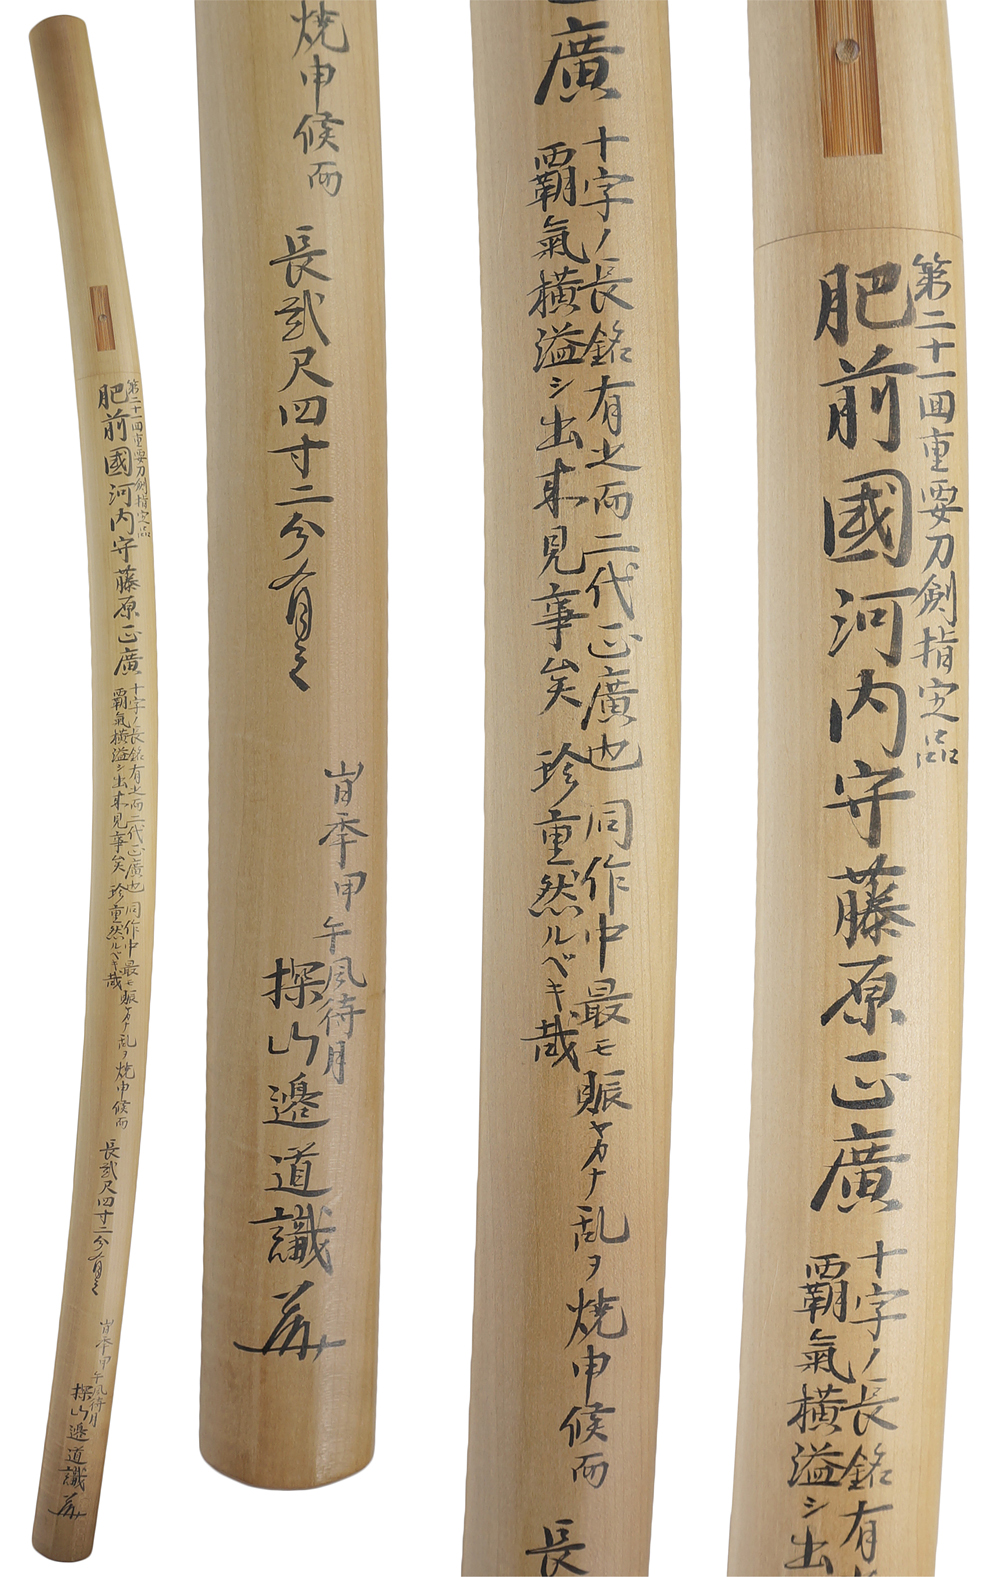 第二十一回重要刀剣指定品
肥前國河内守藤原正廣
十字ノ長銘有之而二代正廣也 同作中最モ賑ヤカナ乱ヲ焼申候而
覇氣横溢シ出来見事矣 珍重然ルベキ哉
長貳尺四寸二分有之
旹季甲午風待月
探山邉道識
焼申候而
長貳尺四寸二分有之
旹季甲午風待月
探山邉道識
廣
十字ノ長銘有之而二代正廣也 同作中最モ賑ヤカナ乱ヲ焼申候而
覇氣横溢シ出来見事矣 珍重然ルベキ哉
長
第二十一回重要刀剣指定品
肥前國河内守藤原正廣
十字ノ長銘有
覇氣横溢シ出